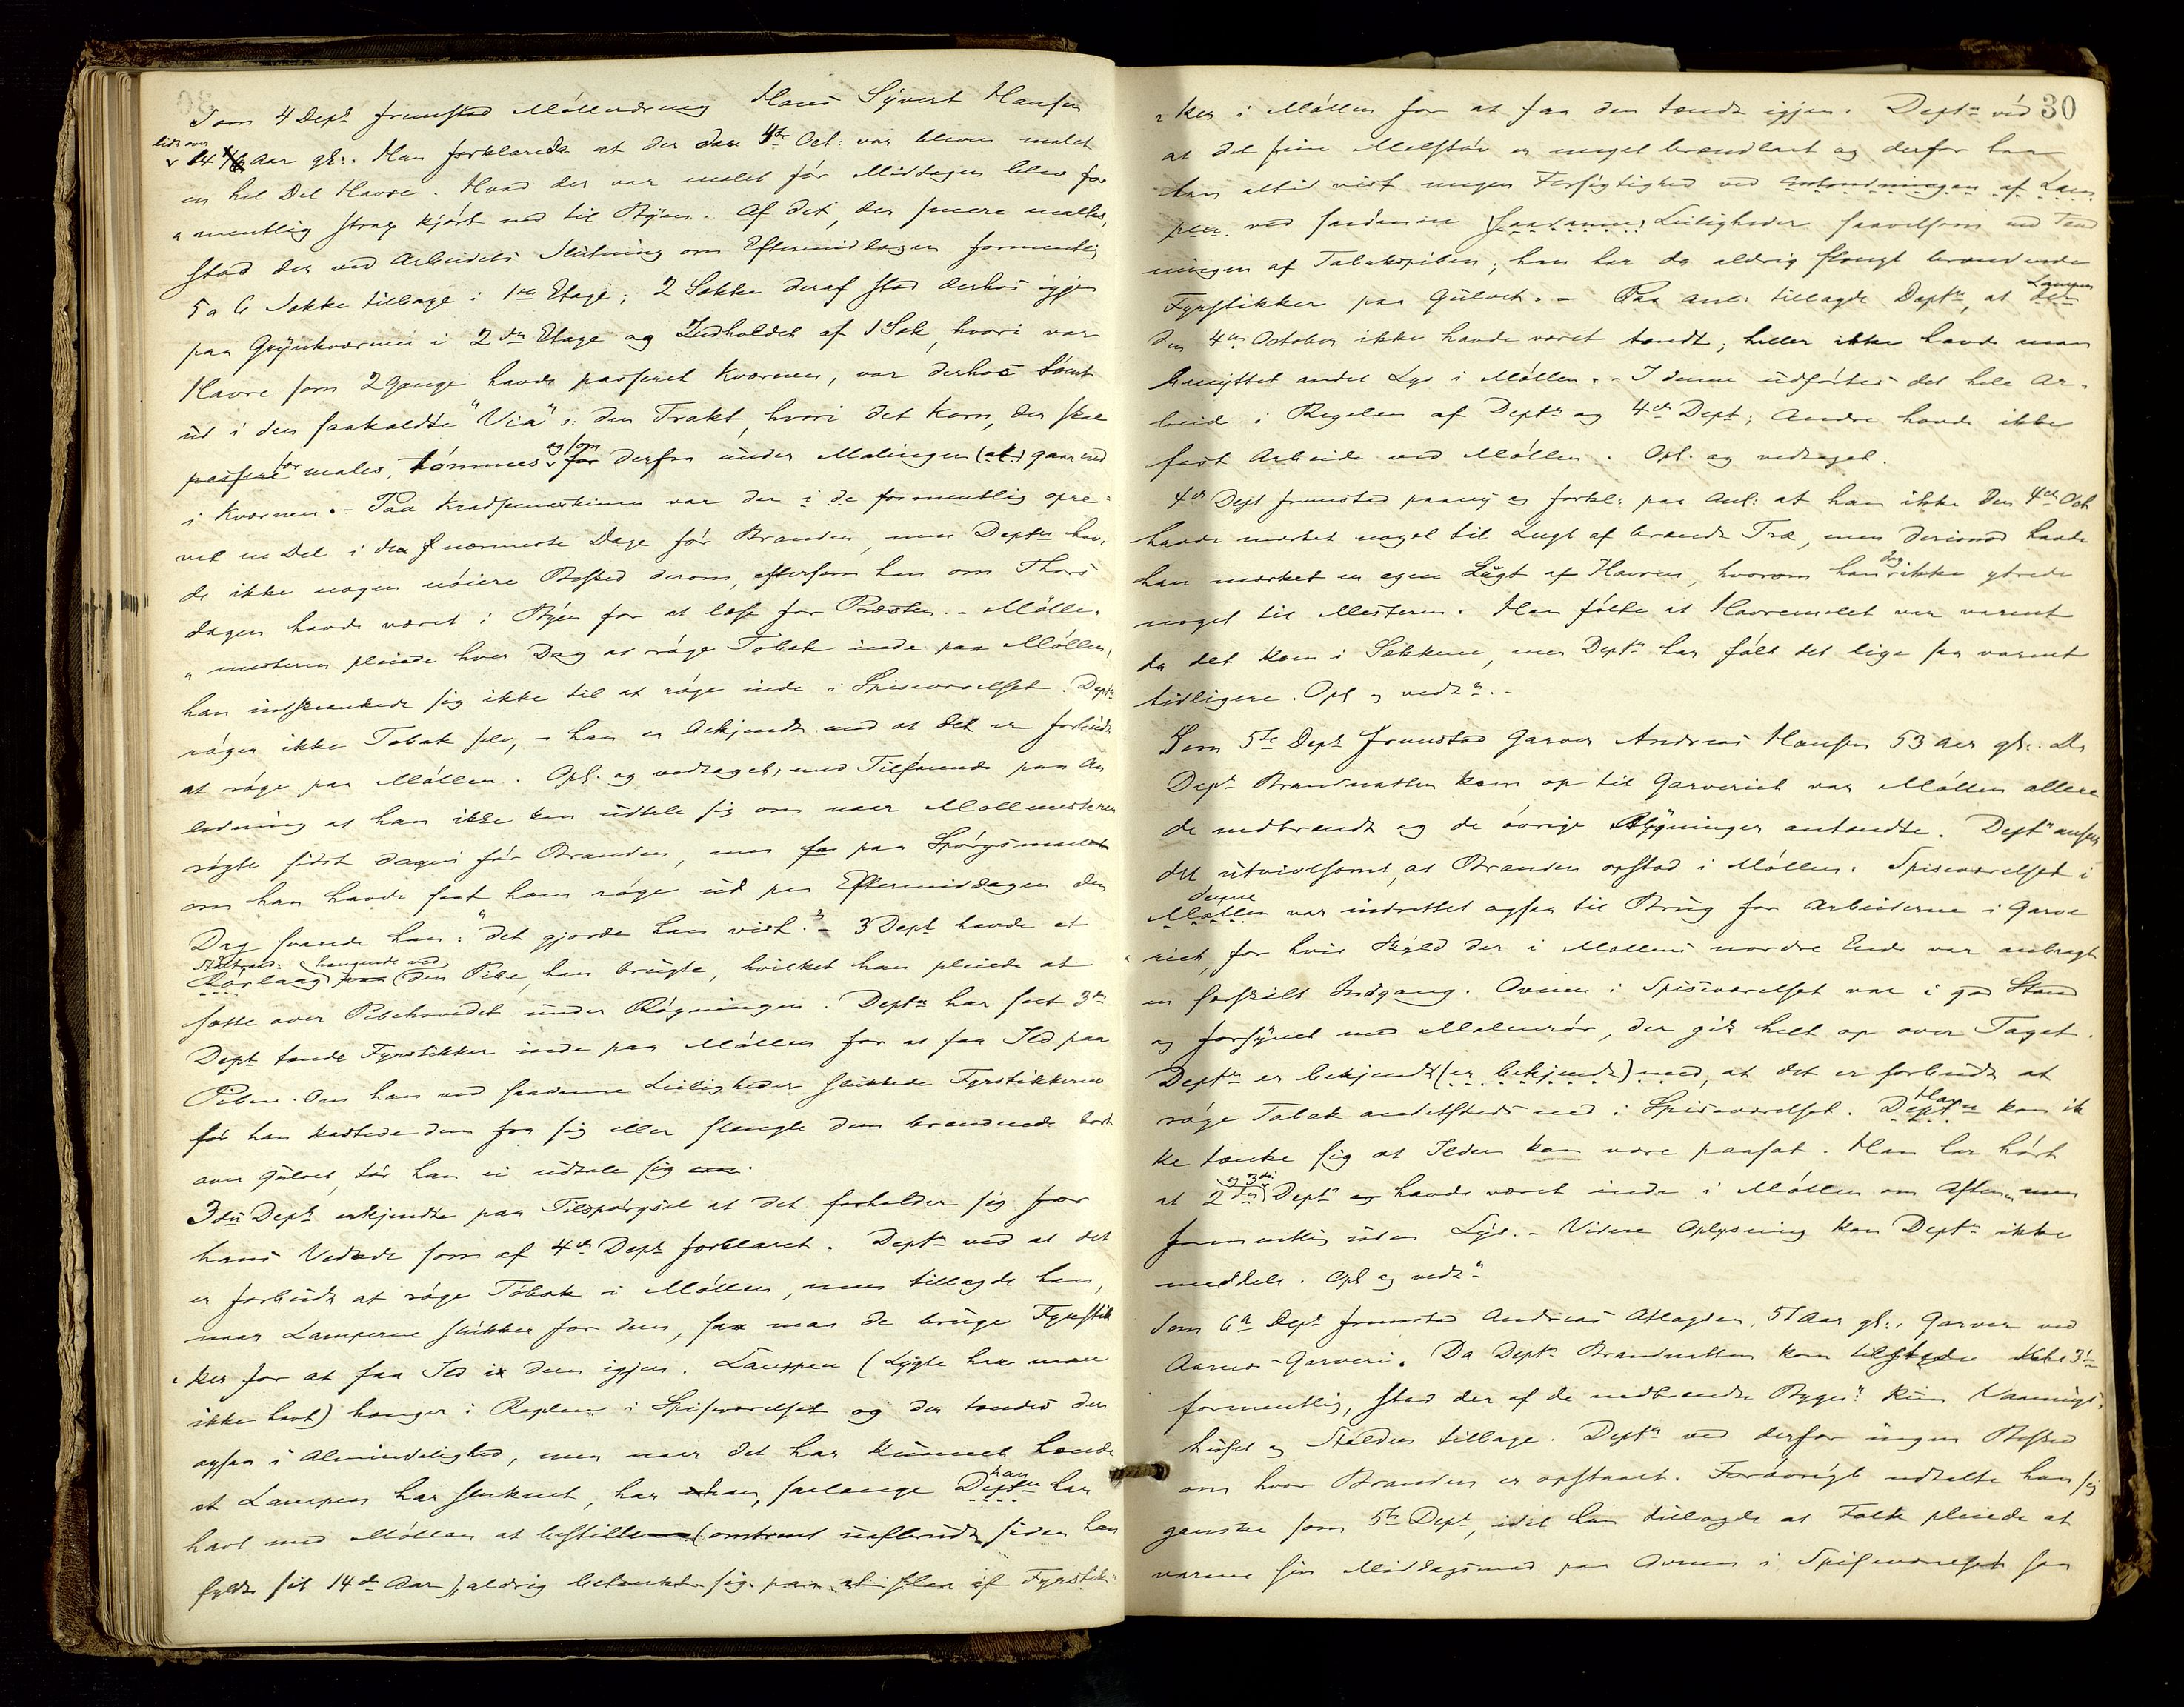 Som 4 Dept fremstod Møllerdreng Hans Sivert Hansen
lidt over
14 Aar gl:. Han forklarede at der den 4de Oct: var bleven malet
en hel Del Havre. Hvad der var malet før Middagen blev for
mentlig strax kjørt ned til Byen. Af det, der senere maltes,
stod der ved Arbeidets Slutning om Eftermiddagen formentlig
5 a 6 Sække tilbage i 1ste Etage; 2 Sække deraf stod derhos igjen
paa Grynkværnen i 2den Etage og Indholdet af 1 Sæk, hvori var
Havre som 2 Gange havde passeret Kværnen, var derhos tømt
ud i den saakaldte "Via" ɔ: den Trakt, hvori det Korn, der skal
passere males, tømmes og som for derfra under Malingen (at) gaar ned
i Kværnen. – Paa Kradsemaskinen var der i de formentlig opre-
vet en Del i de nærmeste Dage før Branden, men Depten hav-
de ikke nogen nøiere Besked derom, eftersom han om Thors
dagen havde været i Byen for at læse for Præsten. – Mølle-
mesteren pleiede hver Dag at røge Tobak inde paa Møllen,
han indskrænkede sig ikke til at røge inde i Spiseværelset. Depten
røger ikke Tobak selv, – han er bekjendt med at det er forbudt
at røge paa Møllen. Opl. og vedtaget, med Tilføiende paa An
ledning at han ikke kan udtale sig om naar Møllemesteren
røgte sidst Dagen før Branden, men paa Spørgsmaalet
om han havde seet ham røge ud paa Eftermiddagen den
Dag svarede han: "det gjorde han vist." – 3 Dept havde et
hængende ved
Rørlaag paa den Pibe, han brugte, hvilket han pleiede at
sætte over Pibehovedet under Røgningen. Depten har seet 3die
Dept tænde Fyrstikker inde paa Møllen for at faa Ild paa
Piben. Om han ved saadanne Leiligheder slukkede Fyrstikkerne
før han kastede dem fra sig eller slængte dem brændende bort
over Gulvet, tør han ei udtale sig om.
3die Dept erkjendte paa Tilspørgsel at det forholder sig for
hans Vedkde som af 4de Dept forklaret. Depten ved at det
er forbudt at røge Tobak i Møllen, men tillagde han,
naar Lamperne slukker for dem, saa maa de bruge Fyrstik
ker for at faa Ild i dem igjen. Lampen (Lygte har man
ikke havt) hænger i Reglen i Spiseværelset og der tændes den
ogsaa i Almindelighed, men naar det har kunnet hænde
at Lampen har slukket, har han, saalænge han Depten har
havt med Møllen at bestille (omtrent uafbrudt siden han
fyldte sit 14de Aar), aldrig betænkt sig paa at slaa af Fyrstik-
30
ker i Møllen for at faa den tændt igjen. Depten véd
at det fine Melstøv er meget brændbart og derfor har
han altid vist megen Forsigtighed ved Antændningen af Lam
pen ved saadanne (saadanne) Leiligheder saavelsom ved Tænd
ningen af Tobakspiben; han har da aldrig slængt brændende
Fyrstikker paa Gulvet. – Paa Anl: tillagde Depten, at Lampen den
den 4de October ikke havde været tændt; heller ikke havde man
benyttet andet Lys i Møllen. – I denne udførtes det hele Ar-
beid i Regelen af Depten og 4de Dept; Andre havde ikke
fast Arbeide ved Møllen. Opl. og vedtaget.
4de Dept fremstod paany og forkl: paa Anl: at han ikke den 4de Oct
havde mærket noget til Lugt af brændt Træ, men derimod havde
han mærket en egen Lugt af Havren, hvorom han dog ikke ytrede
noget til Mesteren. Han følte at Havremelet var varmt
da det kom i Sækkene, men Depten har følt det lige saa varmt
tidligere. Opl og vedtn. –
Som 5te Dept fremstod Garver Andreas Hansen 53 Aar gl:. Da
Depten Brandnatten kom op til Garveriet var Møllen allere
de nedbrændt og de øvrige Bygninger antændte. Depten anser
det utvivlsomt, at Branden opstod i Møllen. Spiseværelset i
denne
Møllen var indrettet ogsaa til Brug for Arbeiderne i Garve
riet, for hvis Skyld der i Møllens nordre Ende var anbragt
en særskilt Indgang. Ovnen i Spiseværelset var i god Stand
og forsynet med Malmrør, der gik helt op over Taget.
Depten er bekjendt (er bekjendt) med, at det er forbudt at
røge Tobak andetsteds end i Spiseværelset. Han Depten kan ik
ke tænke sig at Ilden kan være paasat. Han har hørt
at 2den og 3die Dept og havde været inde i Møllen om Aftenen men
formentlig uden Lys. – Videre Oplysning kan Depten ikke
meddele. Opl og vedtn
Som 6te Dept fremstod Andreas 51 Aar gl:, Garver ved
Aarnes-Garveri. Da Depten Brandnatten kom tilstede Kl 3
formentlig, stod der af de nedbrændte Bygnr kun Vaanings-
huset og Stalden tilbage. Depten ved derfor ingen Besked
om hvor Branden er opstaaet. Forøvrigt udtalte han sig
ganske som 5te Dept, idet han tillagde at Folk pleiede at
varme sin Middagsmad paa Ovnen i Spiseværelset saa